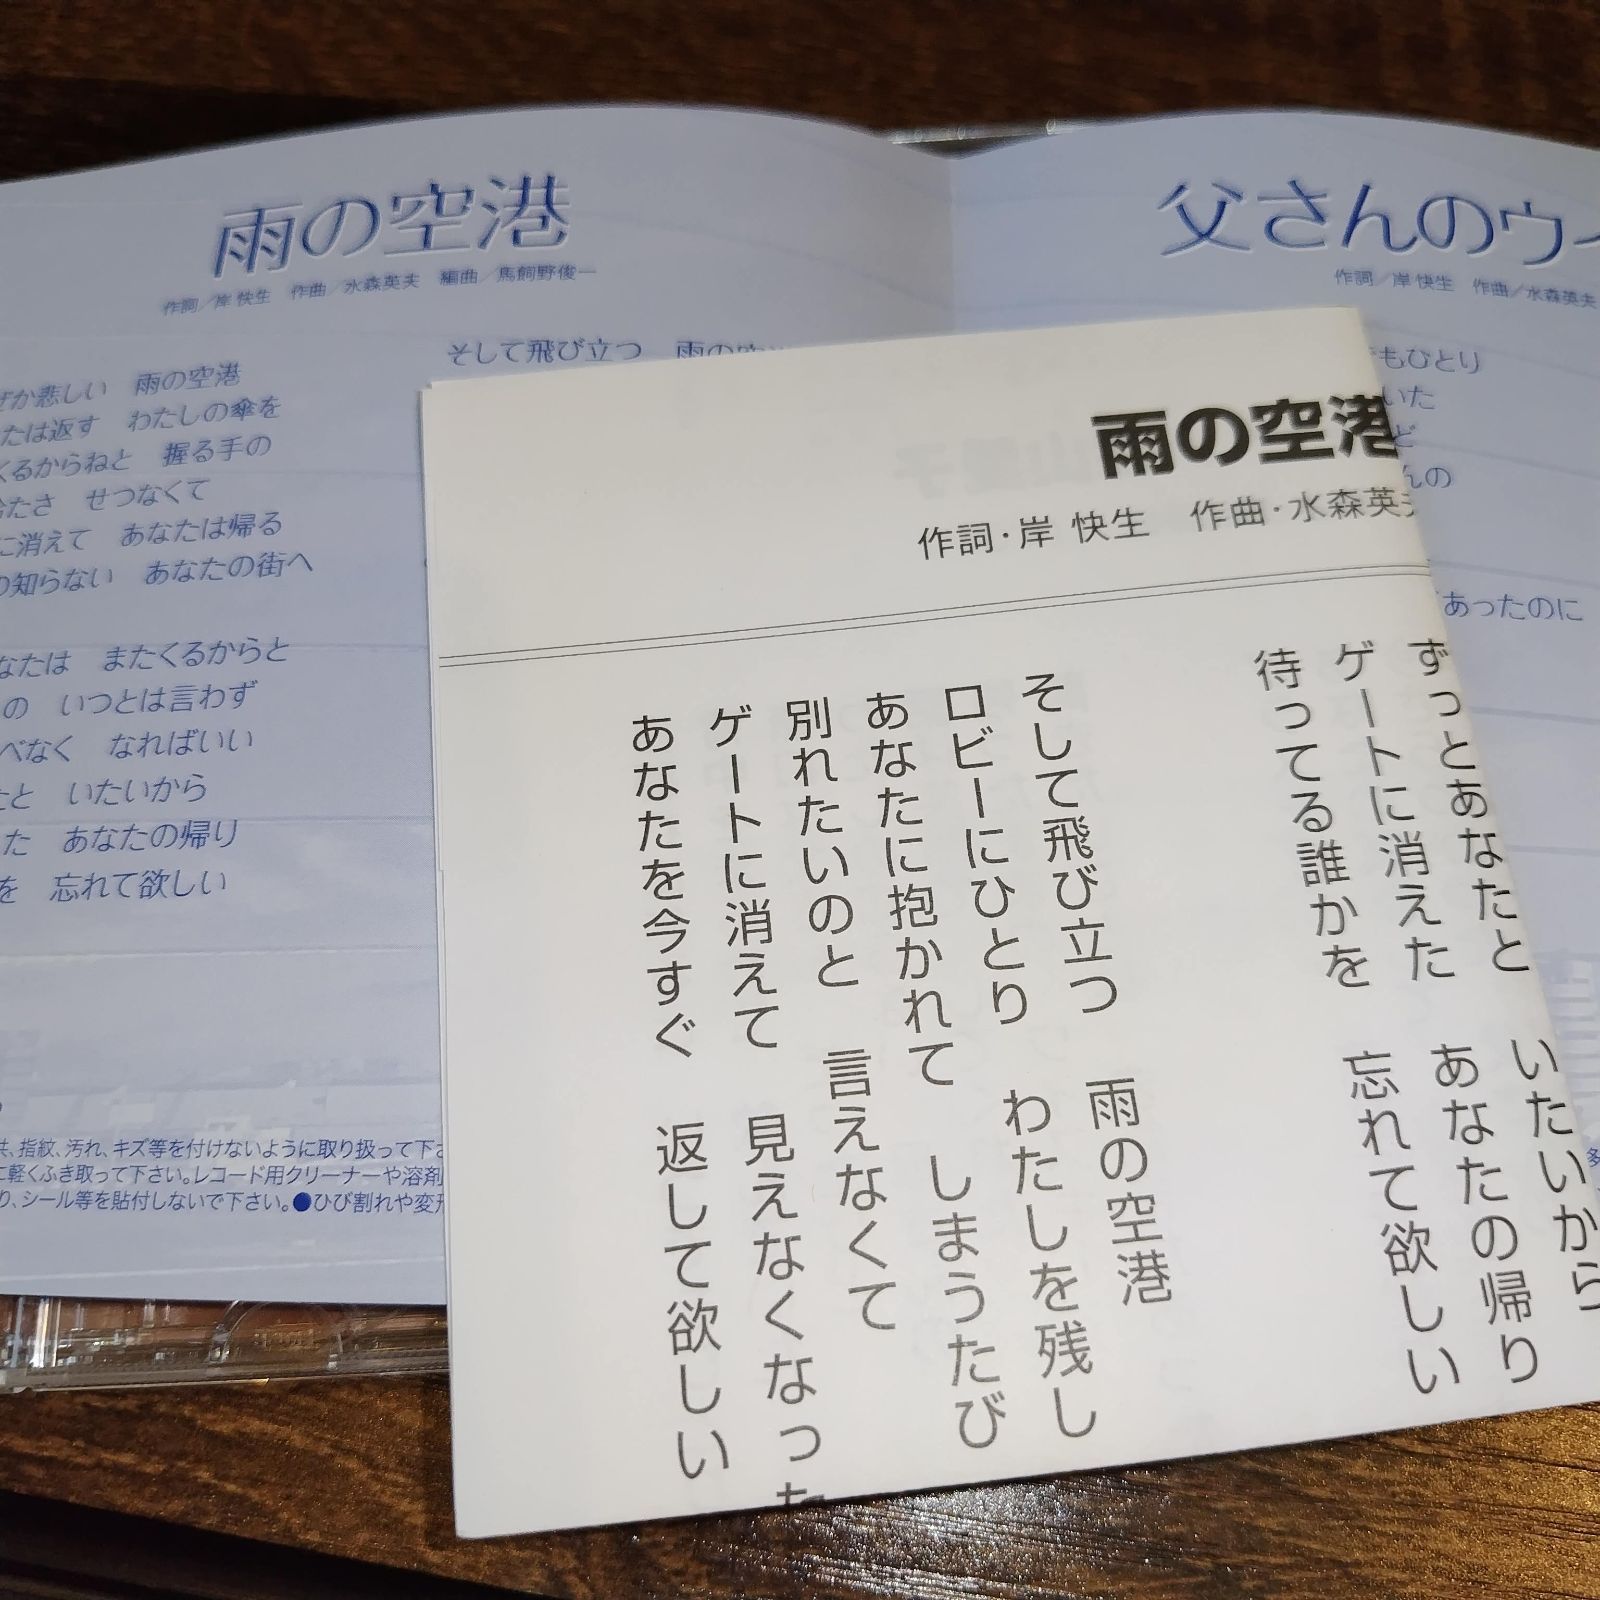 雨の空港
作詞／岸 快生　作曲／水森英夫　編曲／馬飼野俊一
ぜか悲しい　雨の空港
たは返す　わたしの傘を
くるからねと　握る手の
冷たさ　せつなくて
に消えて　あなたは帰る
の知らない　あなたの街へ
なたは　またくるからと
の　いつとは言わず
べなく　なればいい
たと　いたいから
た　あなたの帰り
を　忘れて欲しい
そして飛び立つ　雨の空
指紋、汚れ、キズ等を付けないように取り扱って下さ
に軽くふき取って下さい。レコード用クリーナーや溶剤
り、シール等を貼付しないで下さい。●ひび割れや変形
父さんのウイ
作詞／岸 快生　作曲／水森英夫
もひとり
いた
ど
んの
あったのに
雨の空港
作詞・岸 快生　作曲・水森英夫
ずっとあなたと　いたいから
ゲートに消えた　あなたの帰り
待ってる誰かを　忘れて欲しい
そして飛び立つ　雨の空港
ロビーにひとり　わたしを残し
あなたに抱かれて　しまうたび
別れたいのと　言えなくて
ゲートに消えて　見えなくなった
あなたを今すぐ　返して欲しい